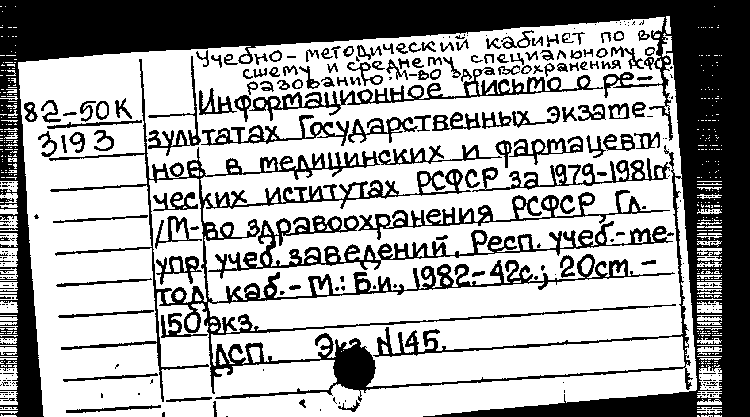 Учебно-методический кабинет по вы-
сшему и среднему специальному об-
разованию М-во здравоохранения РСФСР
82-50К
3193
Информационное письмо о ре-
зультатах Государственных экзаме-
нов в медицинских и фармацевти
ческих иститутах РСФСР за 1979-1981гг
/М-во здравоохранения РСФСР, Гл.
упр. учеб. заведений. Респ. учеб.-ме-
тод. каб. - М.: Б.и., 1982.- 42с.; 20см. -
150 экз.
ДСП. Экз N145.